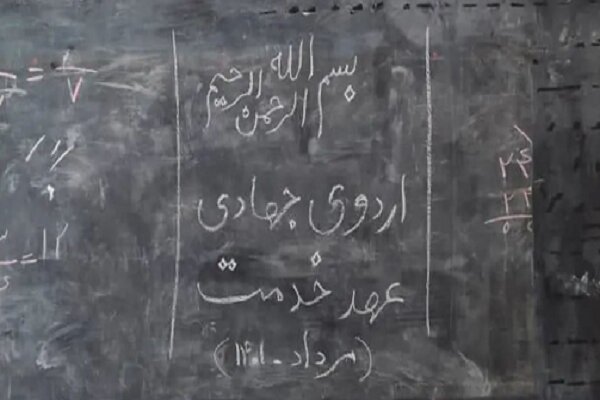 بسم الله الرحمن الرحیم
اردوی جهادی
عهد خدمت
(مرداد-۱۴۰۱)
۷
=۱۲
۲۴